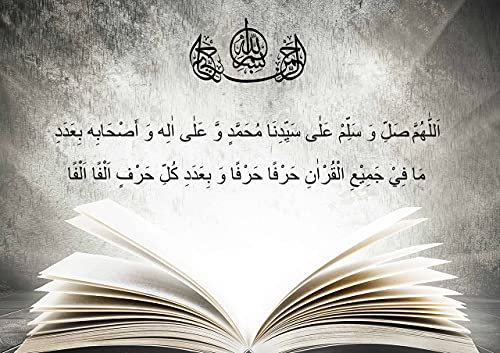 بسم الله الرحمن الرحيم
اَللّٰهُمَّ صَلِّ وَ سَلِّمْ عَلٰى سَيِّدِنَا مُحَمَّدٍ وَّ عَلٰى اٰلِه وَ أَصْحَابِه بِعَدَدِ
مَا فِيْ جَمِيْعِ الْقُرْاٰنِ حَرْفًا حَرْفًا وَ بِعَدَدِ كُلِّ حَرْفٍ اَلْفًا اَلْفًا